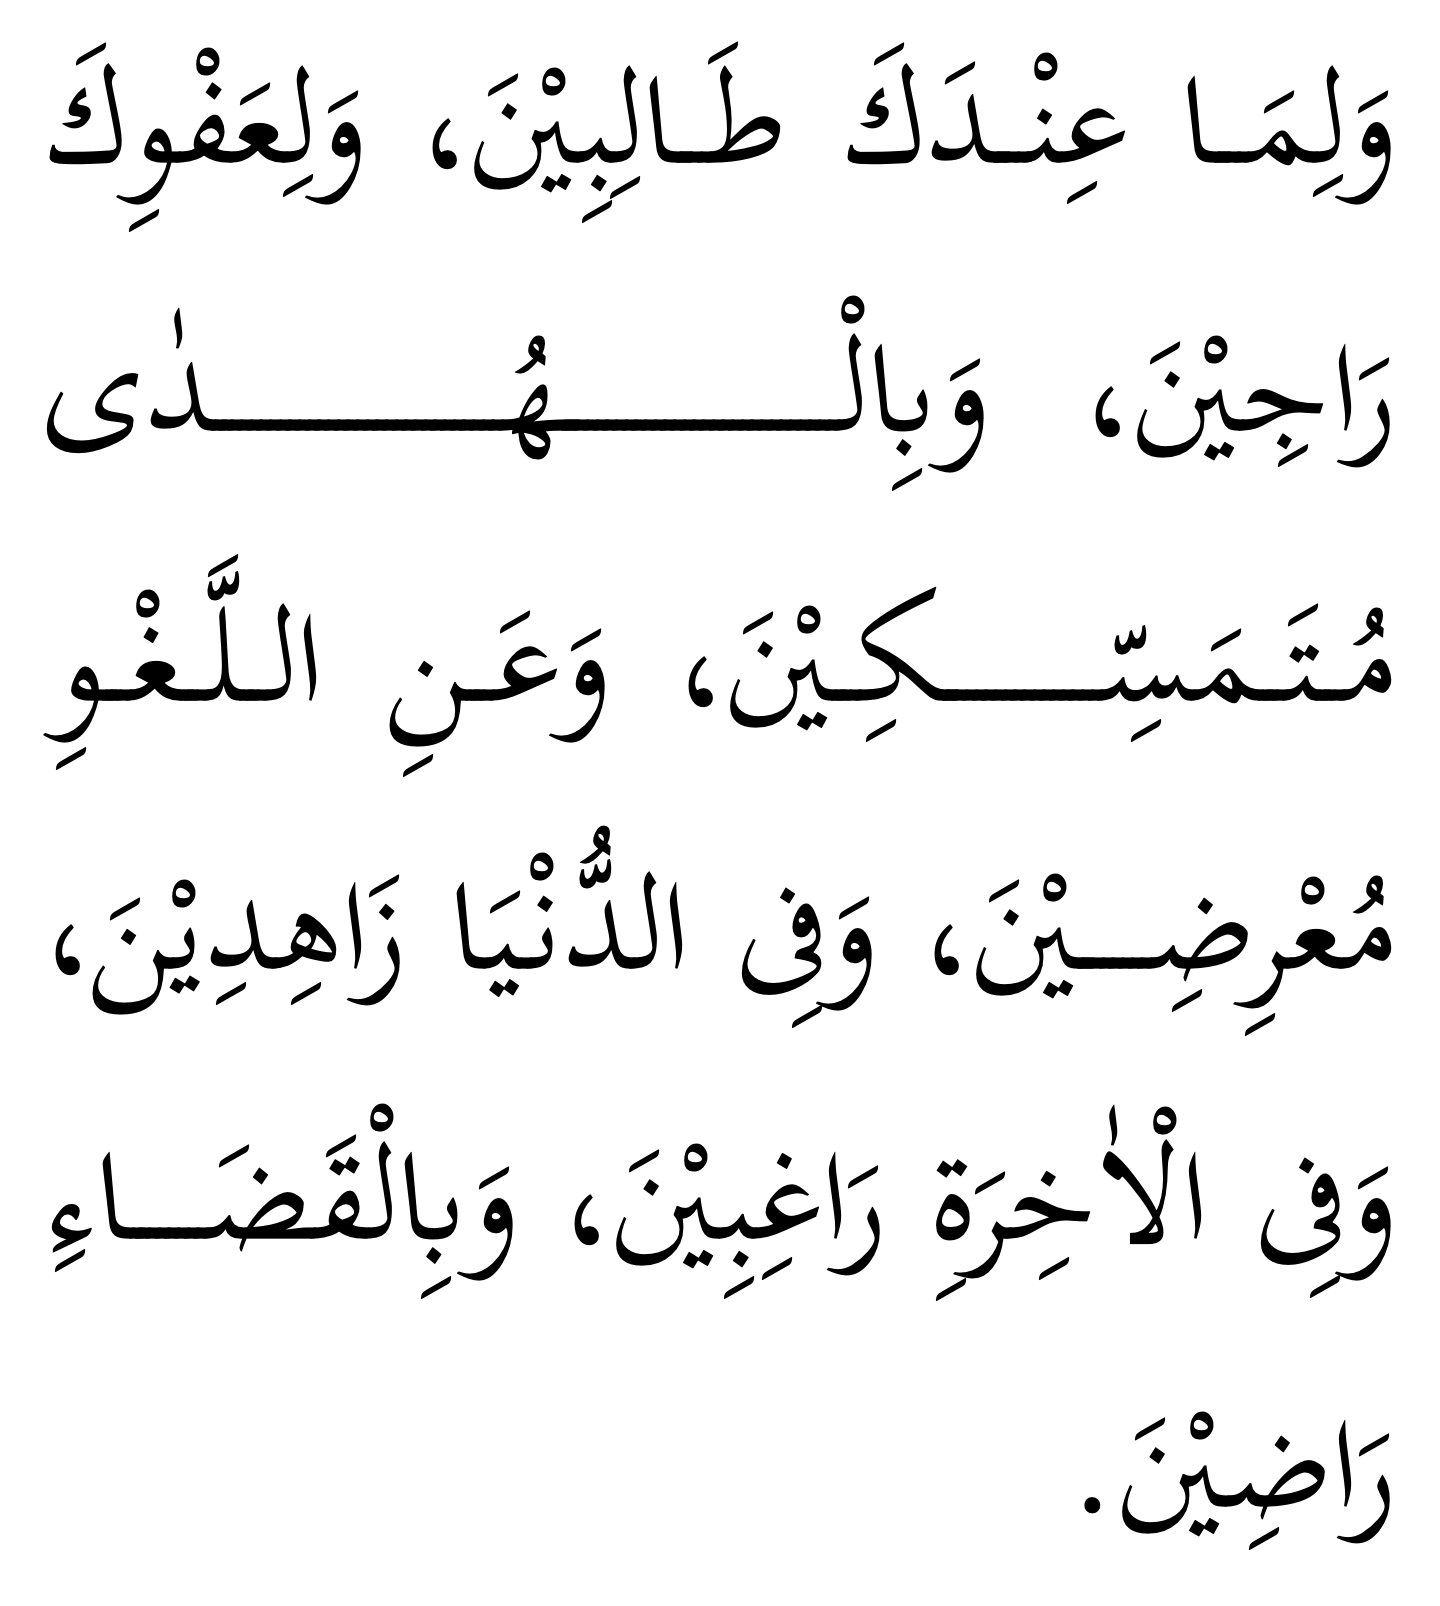 وَلِمَا عِنْدَكَ طَالِبِيْنَ، وَلِعَفْوِكَ
رَاجِيْنَ، وَبِالْهُدٰى
مُتَمَسِّكِيْنَ، وَعَنِ اللَّغْوِ
مُعْرِضِيْنَ، وَفِى الدُّنْيَا زَاهِدِيْنَ،
وَفِى الْاٰخِرَةِ رَاغِبِيْنَ، وَبِالْقَضَاءِ
رَاضِيْنَ.